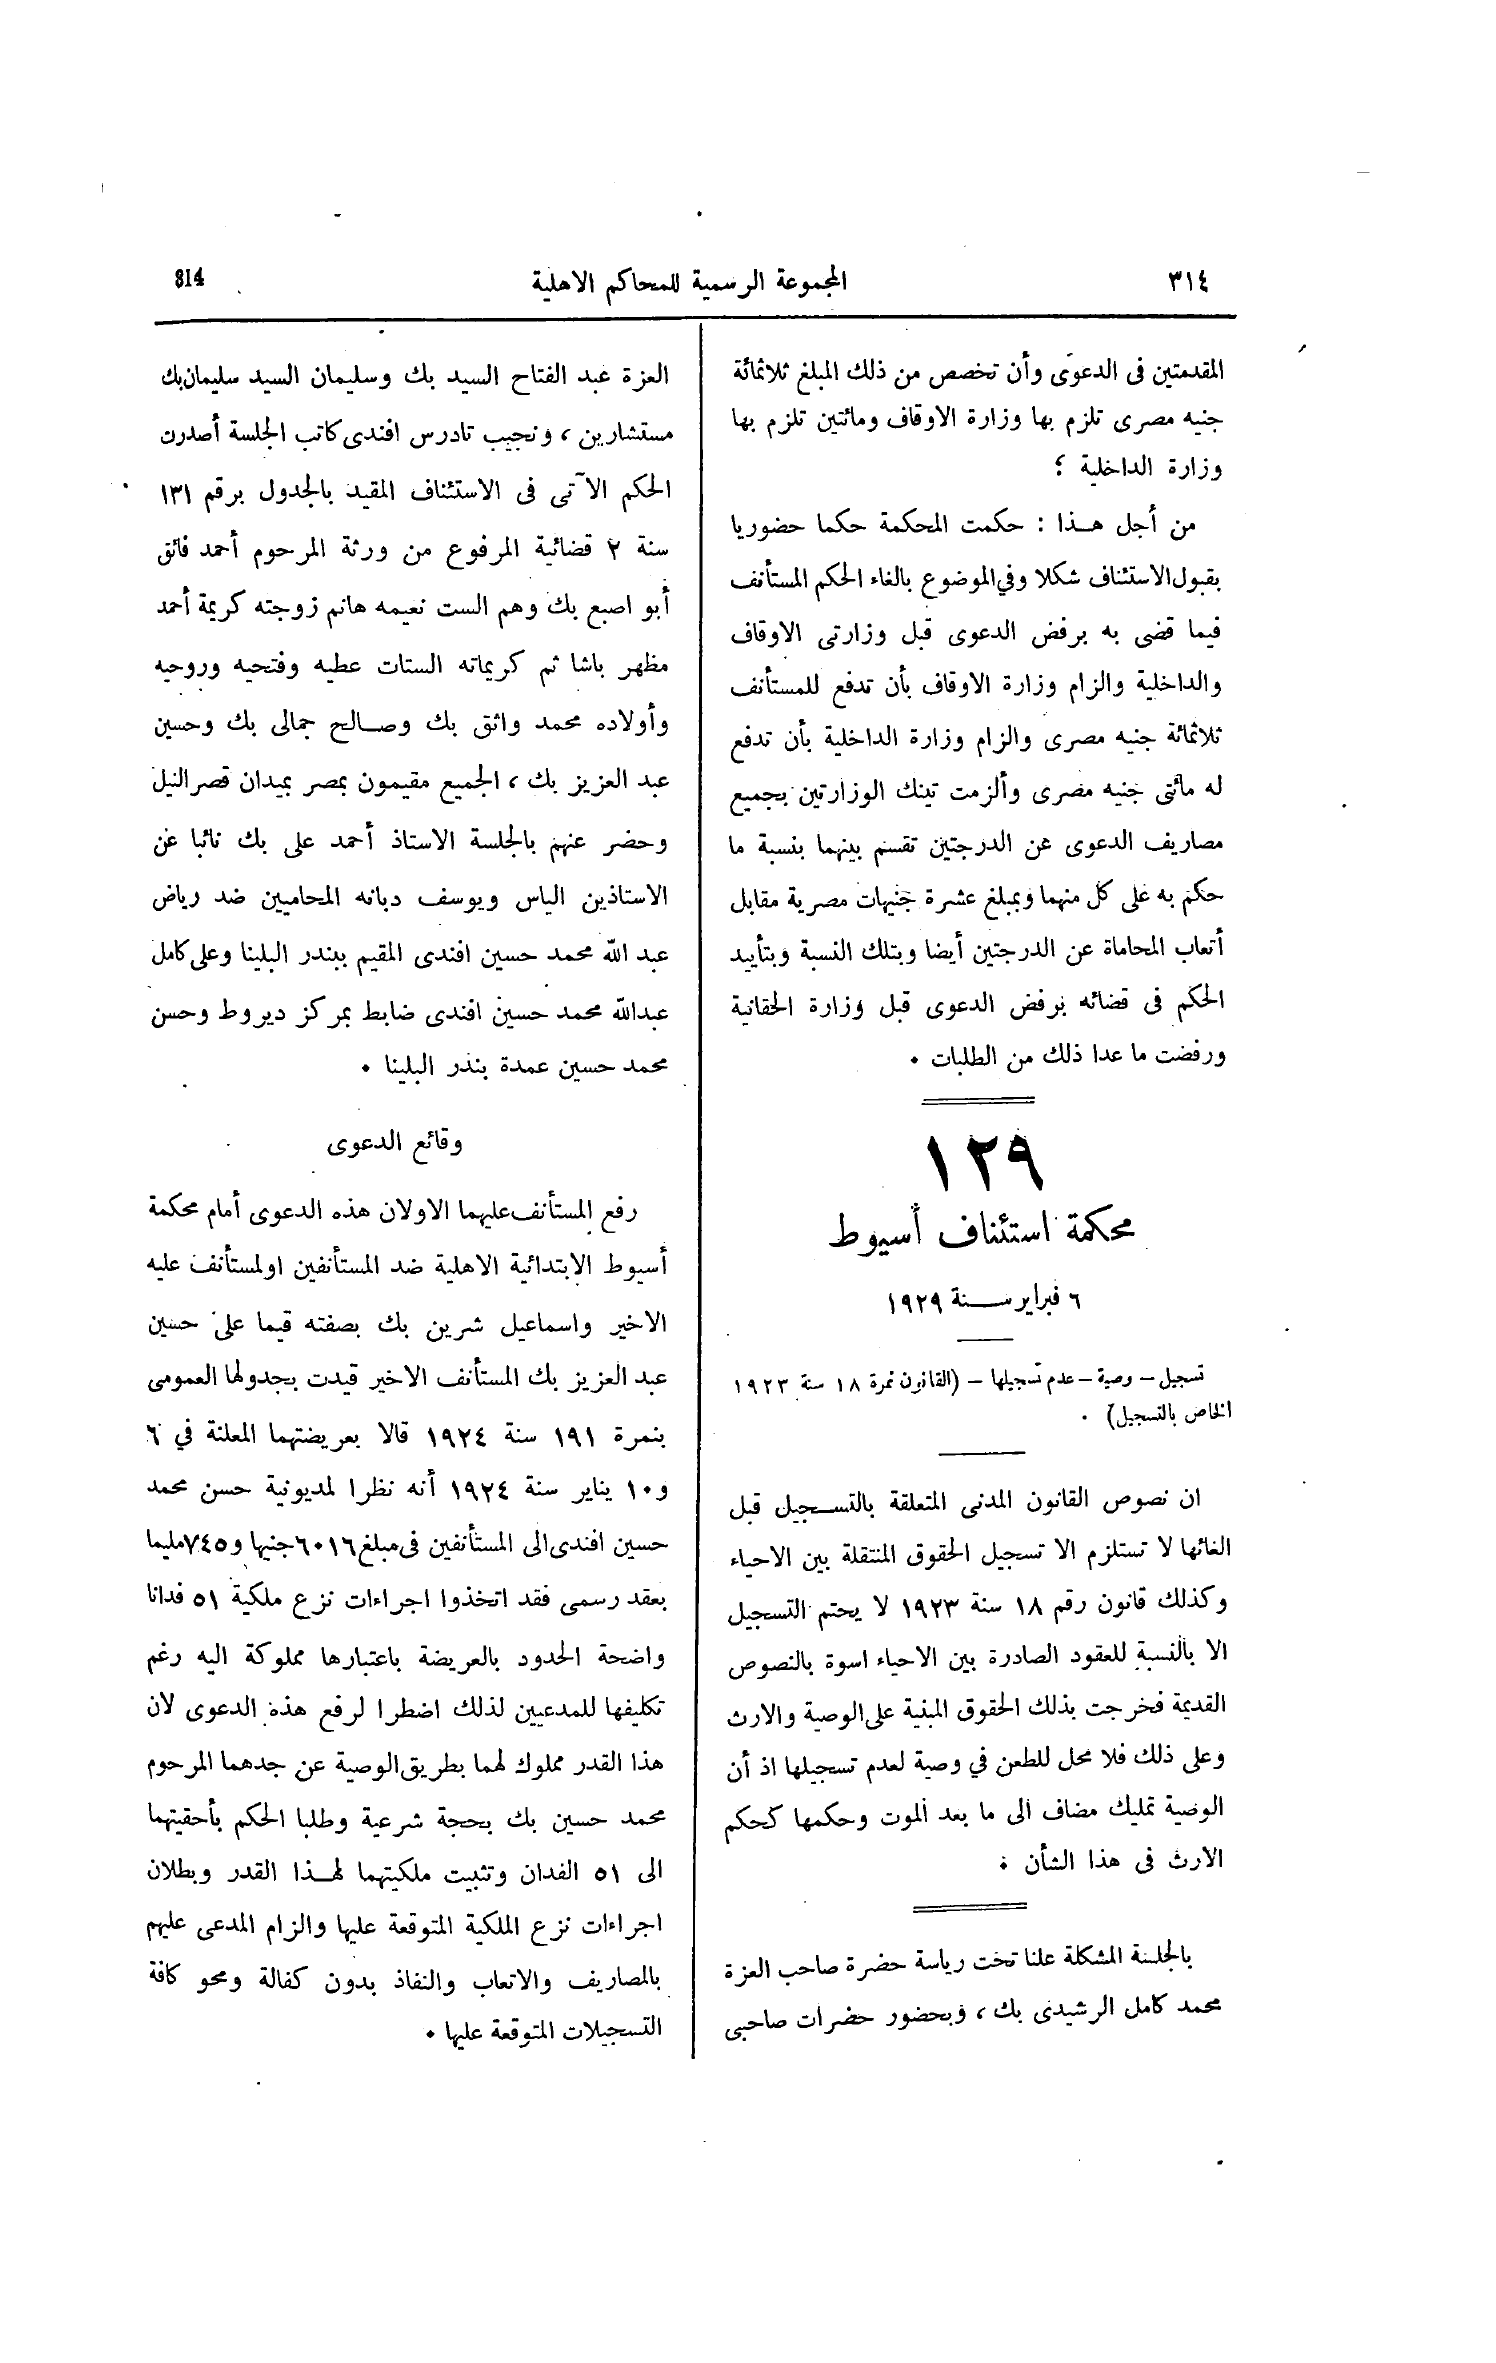 ٣١٤
المجموعة الرسمية للمحاكم الاهلية
314
المقدمتين فى الدعوى وأن تخصص من ذلك المبلغ ثلاثمائة
جنيه مصرى تلزم بها وزارة الاوقاف ومائتين تلزم بها
وزارة الداخلية ؛
من أجل هــذا : حكمت المحكمة حكما حضوريا
بقبول الاستئناف شكلا وفي الموضوع بالغاء الحكم المستأنف
فيما قضى به برفض الدعوى قبل وزارتى الاوقاف
والداخلية والزام وزارة الاوقاف بأن تدفع للمستأنف
ثلاثمائة جنيه مصرى والزام وزارة الداخلية بأن تدفع
له مائتى جنيه مصرى وألزمت تينك الوزارتين بجميع
مصاريف الدعوى عن الدرجتين تقسم بينهما بنسبة ما
حكم به على كل منهما وبمبلغ عشرة جنيهات مصرية مقابل
أتعاب المحاماة عن الدرجتين أيضا وبتلك النسبة وبتأييد
الحكم فى قضائه برفض الدعوى قبل وزارة الحقانية
ورفضت ما عدا ذلك من الطلبات .
١٢٩
محكمة استئناف أسيوط
٦ فبراير ســنة ١٩٢٩
تسجيل - وصية - عدم تسجيلها - (القانون نمرة ١٨ سنة ١٩٢٣
الخاص بالتسجيل) .
ان نصوص القانون المدنى المتعلقة بالتسـجيل قبل
الغائها لا تستلزم الا تسجيل الحقوق المنتقلة بين الاحياء
وكذلك قانون رقم ١٨ سنة ١٩٢٣ لا يحتم التسجيل
الا بالنسبة للعقود الصادرة بين الاحياء اسوة بالنصوص
القديمة فخرجت بذلك الحقوق المبنية على الوصية والارث
وعلى ذلك فلا محل للطعن في وصية لعدم تسجيلها اذ أن
الوصية تمليك مضاف الى ما بعد الموت وحكمها كحكم
الارث فى هذا الشأن .
بالجلسة المشكلة علنا تحت رياسة حضرة صاحب العزة
محمد كامل الرشيدى بك ، وبحضور حضرات صاحبى
العزة عبد الفتاح السيد بك وسليمان السيد سليمان بك
مستشارين ، ونجيب تادرس افندى كاتب الجلسة أصدرت
الحكم الآتى فى الاستئناف المقيد بالجدول برقم ١٣١
سنة ٢ قضائية المرفوع من ورثة المرحوم أحمد فائق
أبو اصبع بك وهم الست نعيمه هانم زوجته كريمة أحمد
مظهر باشا ثم كريماته الستات عطيه وفتحيه وروحيه
وأولاده محمد واثق بك وصــالح جمالى بك وحسين
عبد العزيز بك ، الجميع مقيمون بمصر بميدان قصر النيل
وحضر عنهم بالجلسة الاستاذ أحمد على بك نائبا عن
الاستاذين الياس ويوسف دبانه المحاميين ضد رياض
عبد الله محمد حسين افندى المقيم ببندر البلينا وعلى كامل
عبدالله محمد حسين افندى ضابط بمركز ديروط وحسن
محمد حسين عمدة بندر البلينا .
وقائع الدعوى
رفع المستأنف عليهما الاولان هذه الدعوى أمام محكمة
أسيوط الابتدائية الاهلية ضد المستأنفين اولمستأنف عليه
الاخير واسماعيل شرين بك بصفته قيما على حسين
عبد العزيز بك المستأنف الاخير قيدت بجدولها العمومى
بنمرة ١٩١ سنة ١٩٢٤ قالا بعريضتهما المعلنة في ٦
و١٠ يناير سنة ١٩٢٤ أنه نظرا لمديونية حسن محمد
حسين افندى الى المستأنفين فى مبلغ ٦٠١٦ جنيها و٧٤٥ مليما
بعقد رسمى فقد اتخذوا اجراءات نزع ملكية ٥١ فدانا
واضحة الحدود بالعريضة باعتبارها مملوكة اليه رغم
تكليفها للمدعيين لذلك اضطرا لرفع هذه الدعوى لان
هذا القدر مملوك لهما بطريق الوصية عن جدهما المرحوم
محمد حسين بك بحجة شرعية وطلبا الحكم بأحقيتهما
الى ٥١ الفدان وتثبيت ملكيتهما لهــذا القدر وبطلان
اجراءات نزع الملكية المتوقعة عليها والزام المدعى عليهم
بالمصاريف والاتعاب والنفاذ بدون كفالة ومحو كافة
التسجيلات المتوقعة عليها .